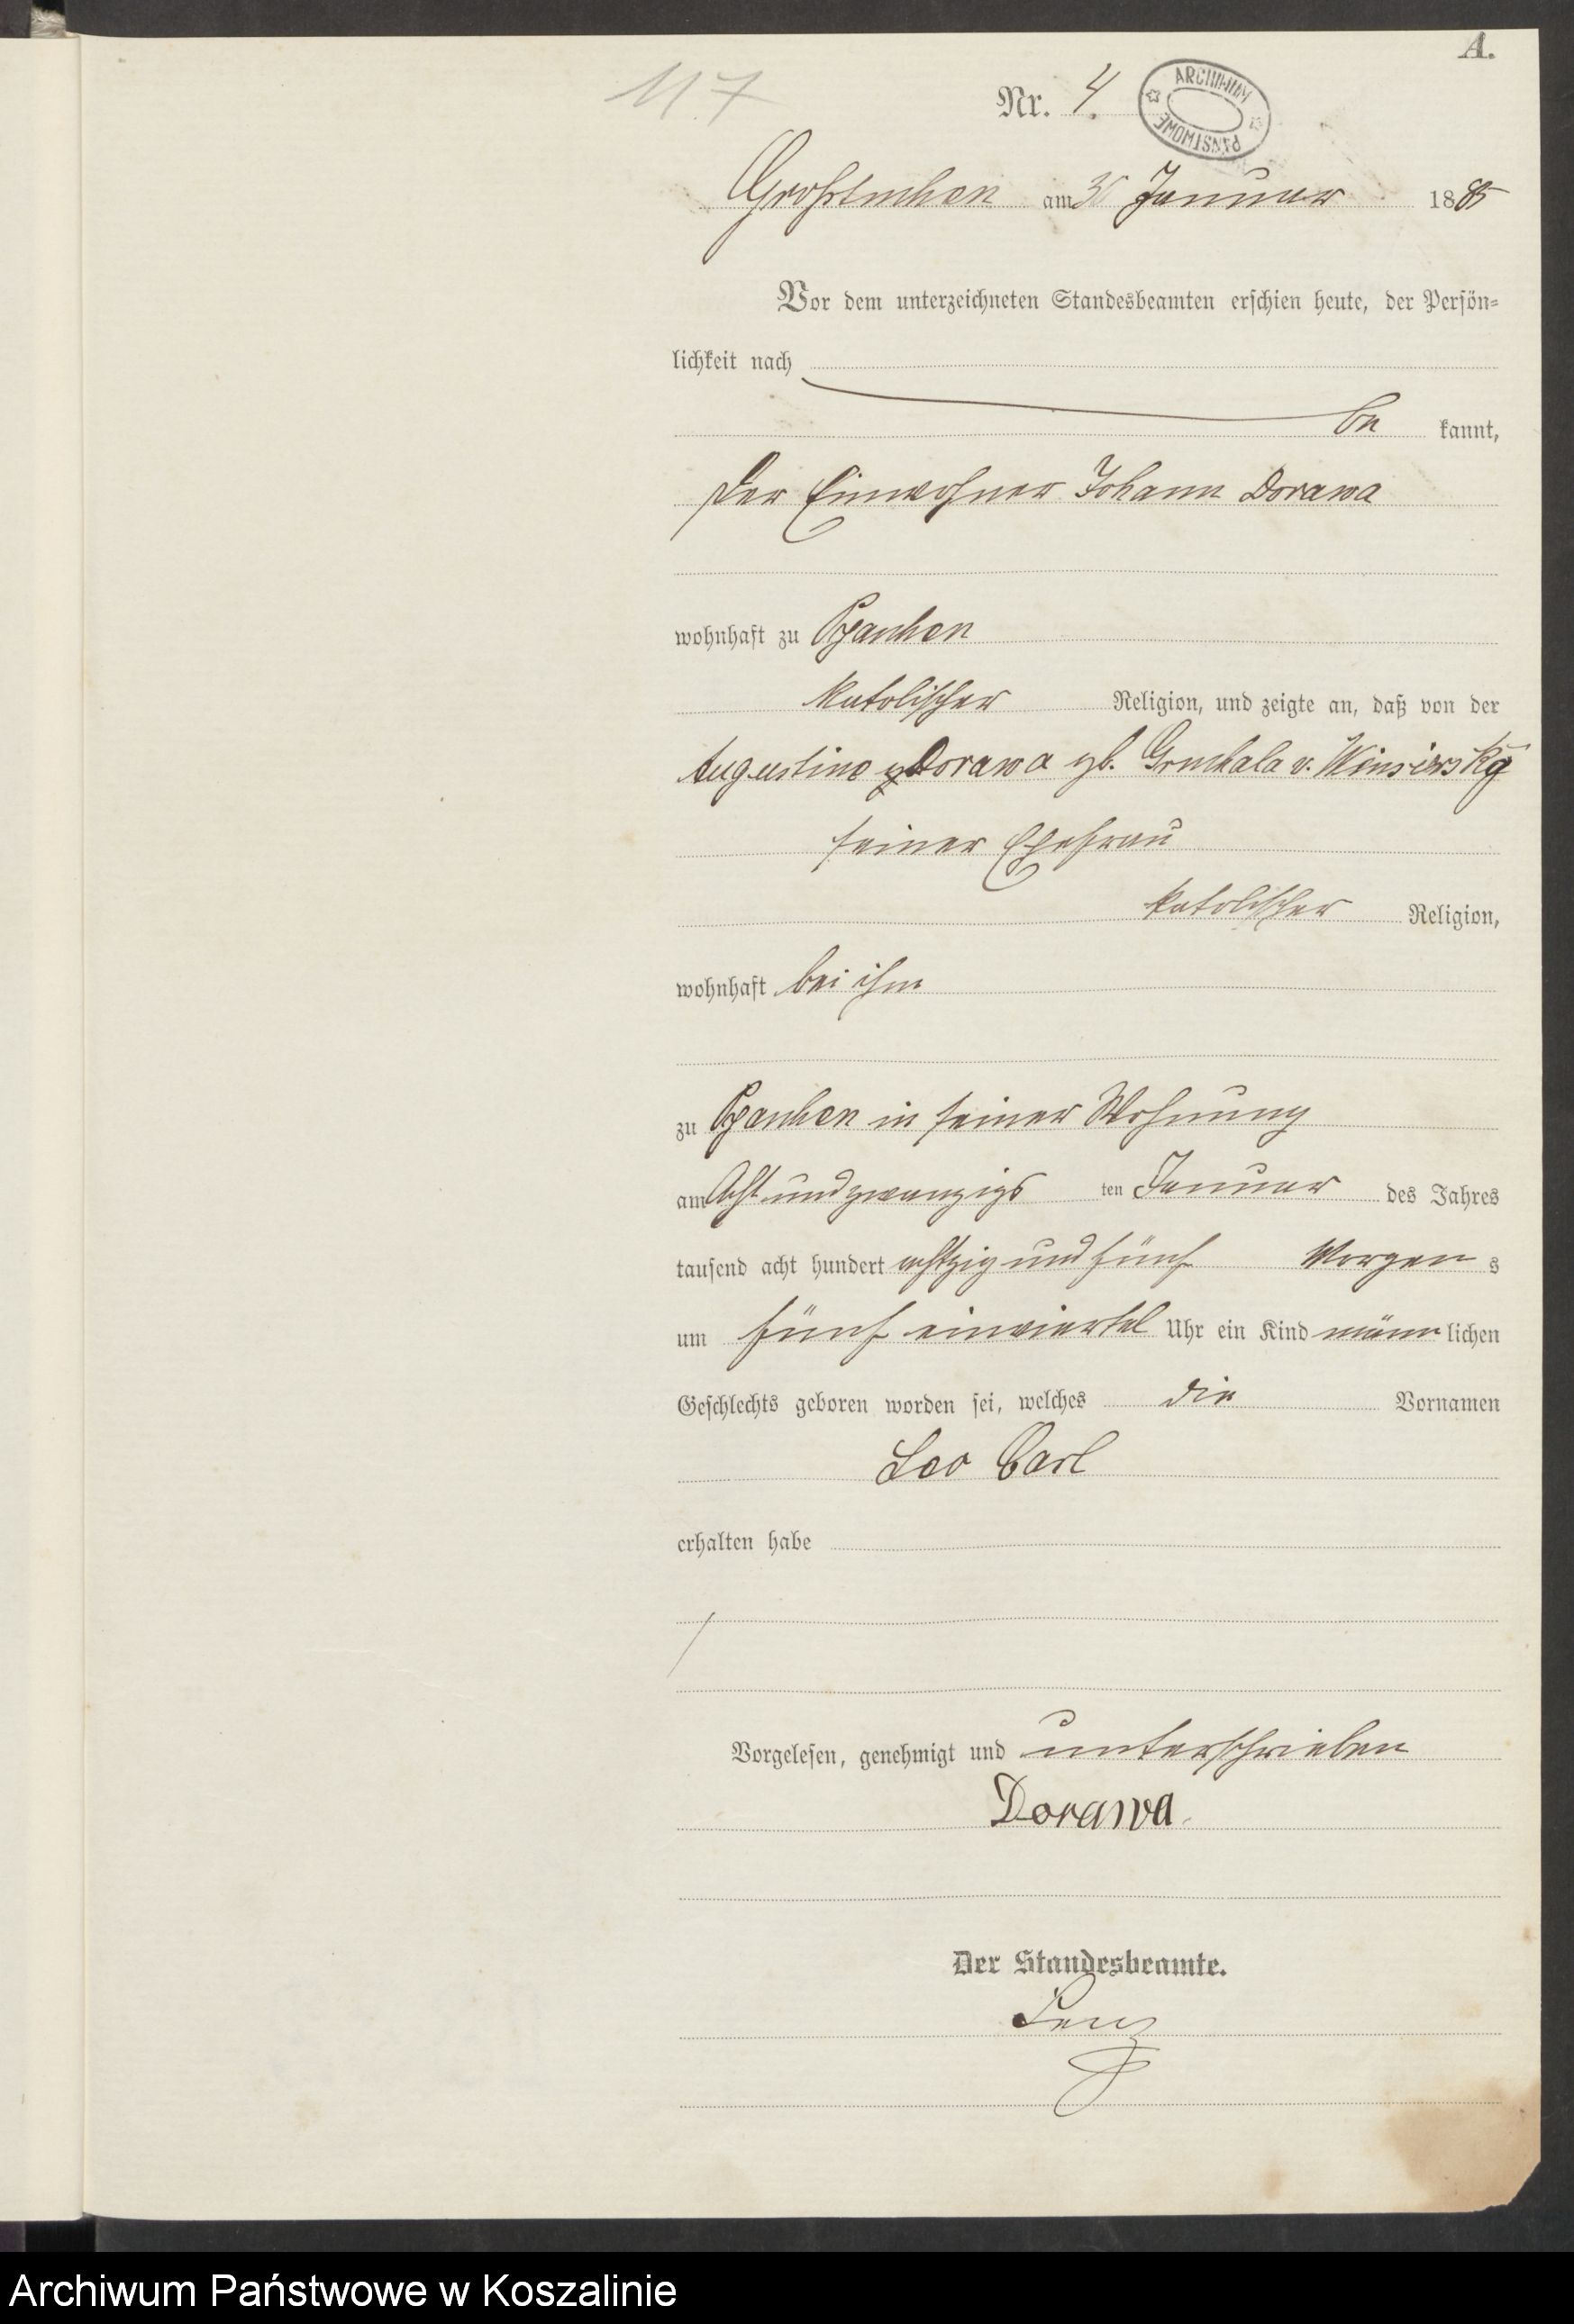 A.
117
Nr. 4.
ARCHIWUM PAŃSTWOWE
Großtuchen am 30 Januar 1885
Vor dem unterzeichneten Standesbeamten erschien heute, der Persön-
lichkeit nach
be kannt,
der Einwohner Johann Dorawa
wohnhaft zu
katolischer Religion, und zeigte an, daß von der
Augustine Dorawa gb. Gruchala v.
seiner Ehefrau
katolischer Religion,
wohnhaft bei ihm
zu in seiner Wohnung
am Acht und zwanzigs ten Januar des Jahres
tausend acht hundert achtzig und fünf Morgen s
um fünf einviertel Uhr ein Kind männ lichen
Geschlechts geboren worden sei, welches die Vornamen
Leo Carl
erhalten habe
Vorgelesen, genehmigt und unterschrieben
Dorawa
Der Standesbeamte.
Lenz
Archiwum Państwowe w Koszalinie